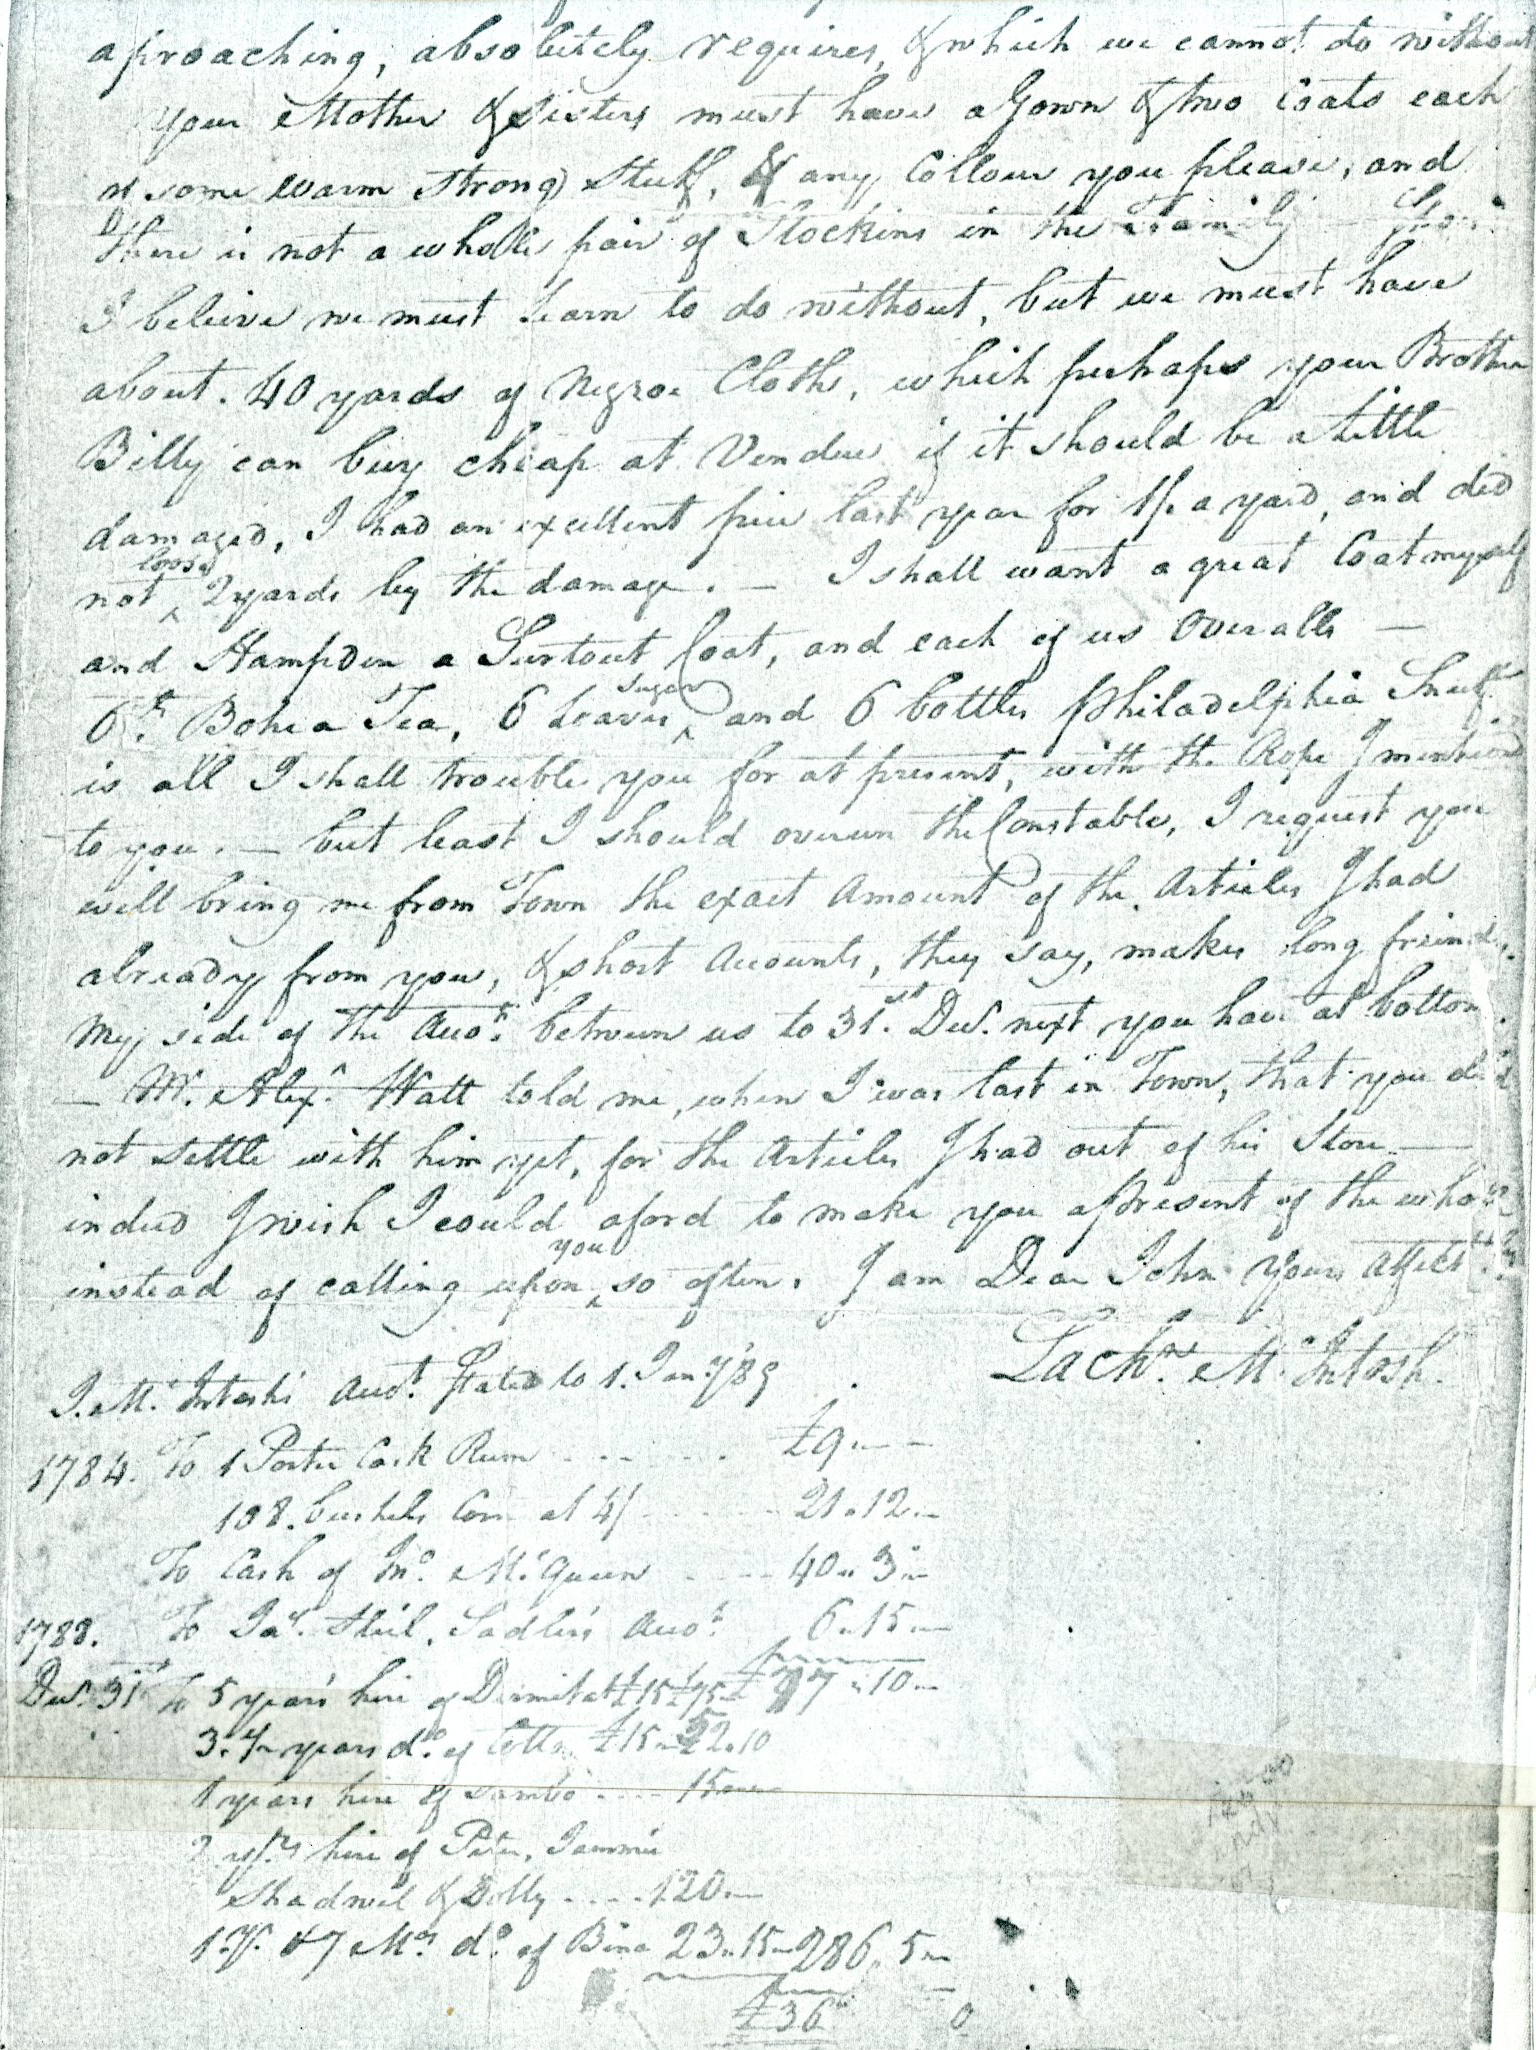 aproaching, absolutely requires, & which we cannot do without
your Mother & Sisters must have a Gown & two Coats each
of some warm strong Stuff, of any Collour you please, and
there is not a whole pair of Stockins in the Family —
I believe we must Learn to do without, but we must have
about 40 yards of Negroe Cloth, which perhaps your Brother
Billy can buy cheap at Vendue if it should be a Little
damaged, I had an excellent piece last year for 1/ a yard, and did
not ^loose 2 yards by the damage. — I shall want a great Coat myself
and Hampden a Surtout Coat, and each of us Overalls —
6 lb. Bohea Tea, 6 Loaves ^Sugar and 6 bottles Philadelphia Snuff
is all I shall trouble you for at present, with the Rope I mentiond
to you. — but least I should overun the Constable, I request you
will bring me from Town the exact Amount of the Articles I had
already from you, & short Accounts, they say, makes long freinds.
My side of the Accot. between us to 31st. Decr. next you have at bottom.
— Mr. Alexr. Watt told me, when I was last in Town, that you did
not settle with him yet, for the Articles I had out of his Store —
indeed I wish I could aford to make you a Present of the whole
instead of calling upon ^you so often. I am Dear John Yours Affect
Lachn. McIntosh.
J. McIntosh's Accot. Stated to 1. Jany. 789
1784. To 1 Porter Cask Rum . . . . . . £9 . — —
108. bushels Corn at 4/ . . . . . 21 . 12 . —
To Cash of Jno. McQueen . . . . 40 . 3 . —
1788. To Jas. Steil, Sadler's Accot. 6 . 15 . —
Decr. 31st To 5 years hire of Dermit at £15 £75 — £77 . 10 . —
3. ½ years do. of Cotto £15 — 52 . 10
1 years hire of Sambo . . . . 15 . — . —
2 yrs hire of Peter, Jammie
Shadwel & Dolly . . . . 120 . —
1 Y. & 7 Ms. do. of Bina 23 . 15 — 286 . 5 . —
£36 0